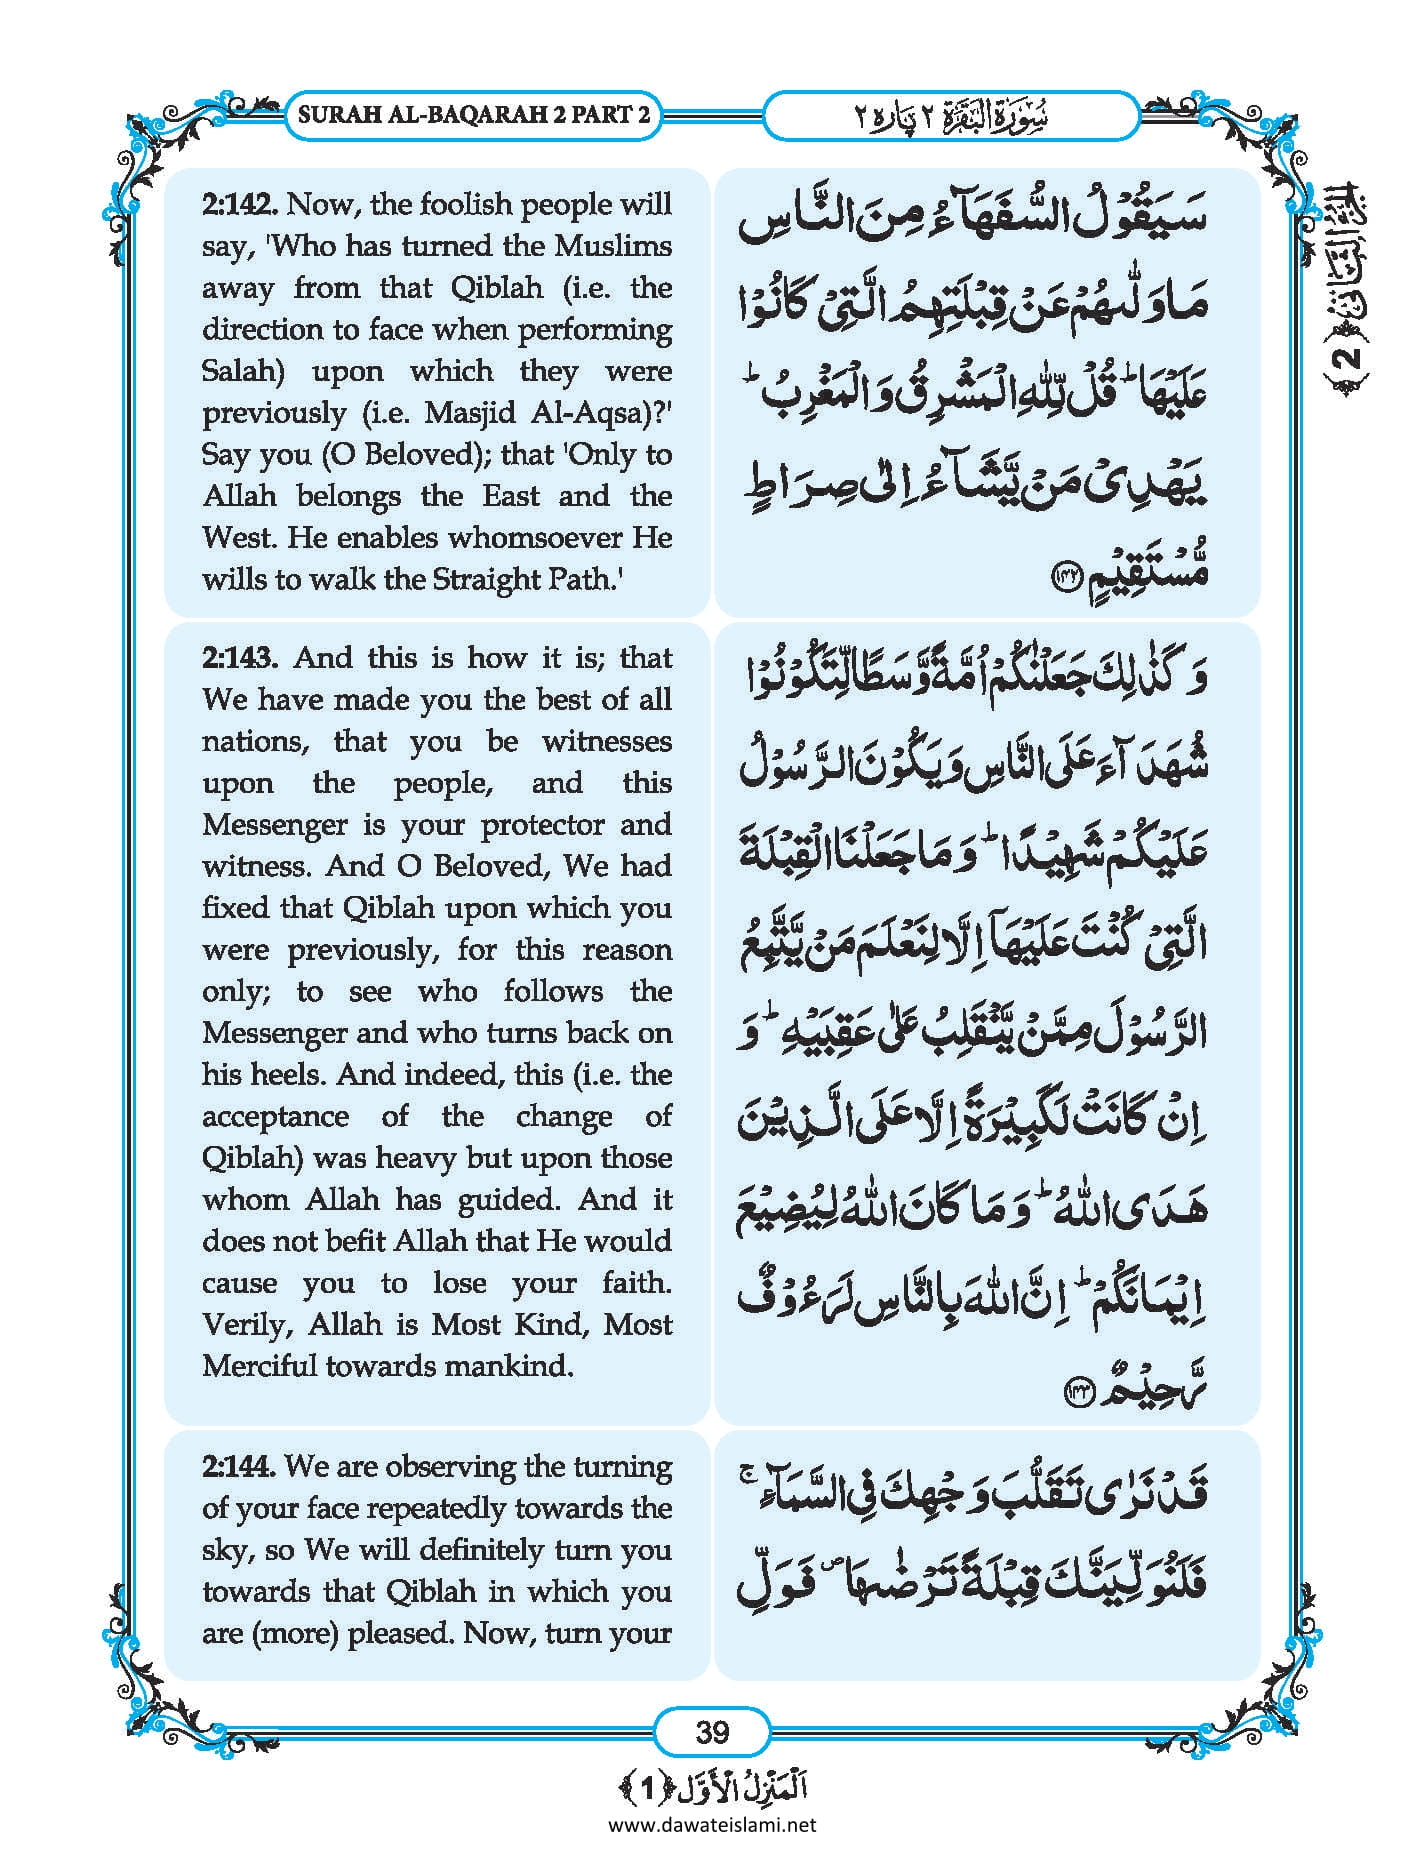 SURAH AL-BAQARAH 2 PART 2
سُوْرَةُ الْبَقَرَة ٢ پارہ ٢
الجزء الثانی ﴿2﴾
2:142. Now, the foolish people will
say, 'Who has turned the Muslims
away from that Qiblah (i.e. the
direction to face when performing
Salah) upon which they were
previously (i.e. Masjid Al-Aqsa)?'
Say you (O Beloved); that 'Only to
Allah belongs the East and the
West. He enables whomsoever He
wills to walk the Straight Path.'
سَيَقُوْلُ السُّفَهَآءُ مِنَ النَّاسِ
مَا وَلّٰىهُمْ عَنْ قِبْلَتِهِمُ الَّتِیْ كَانُوْا
عَلَيْهَا ؕ قُلْ لِّلّٰهِ الْمَشْرِقُ وَ الْمَغْرِبُ ؕ
يَهْدِیْ مَنْ يَّشَآءُ اِلٰی صِرَاطٍ
مُّسْتَقِيْمٍ ﴿۱۴۲﴾
2:143. And this is how it is; that
We have made you the best of all
nations, that you be witnesses
upon the people, and this
Messenger is your protector and
witness. And O Beloved, We had
fixed that Qiblah upon which you
were previously, for this reason
only; to see who follows the
Messenger and who turns back on
his heels. And indeed, this (i.e. the
acceptance of the change of
Qiblah) was heavy but upon those
whom Allah has guided. And it
does not befit Allah that He would
cause you to lose your faith.
Verily, Allah is Most Kind, Most
Merciful towards mankind.
وَ كَذٰلِكَ جَعَلْنٰكُمْ اُمَّةً وَّسَطًا لِّتَكُوْنُوْا
شُهَدَآءَ عَلَی النَّاسِ وَ يَكُوْنَ الرَّسُوْلُ
عَلَيْكُمْ شَهِيْدًا ؕ وَ مَا جَعَلْنَا الْقِبْلَةَ
الَّتِیْ كُنْتَ عَلَيْهَاۤ اِلَّا لِنَعْلَمَ مَنْ يَّتَّبِعُ
الرَّسُوْلَ مِمَّنْ يَّنْقَلِبُ عَلٰی عَقِبَيْهِ ؕ وَ
اِنْ كَانَتْ لَكَبِيْرَةً اِلَّا عَلَی الَّذِيْنَ
هَدَی اللّٰهُ ؕ وَ مَا كَانَ اللّٰهُ لِيُضِيْعَ
اِيْمَانَكُمْ ؕ اِنَّ اللّٰهَ بِالنَّاسِ لَرَءُوْفٌ
رَّحِيْمٌ ﴿۱۴۳﴾
2:144. We are observing the turning
of your face repeatedly towards the
sky, so We will definitely turn you
towards that Qiblah in which you
are (more) pleased. Now, turn your
قَدْ نَرٰی تَقَلُّبَ وَجْهِكَ فِی السَّمَآءِ ۚ
فَلَنُوَلِّيَنَّكَ قِبْلَةً تَرْضٰىهَا ۪ فَوَلِّ
39
اَلْمَنْزِلُ الْاَوَّل ﴿1﴾
www.dawateislami.net